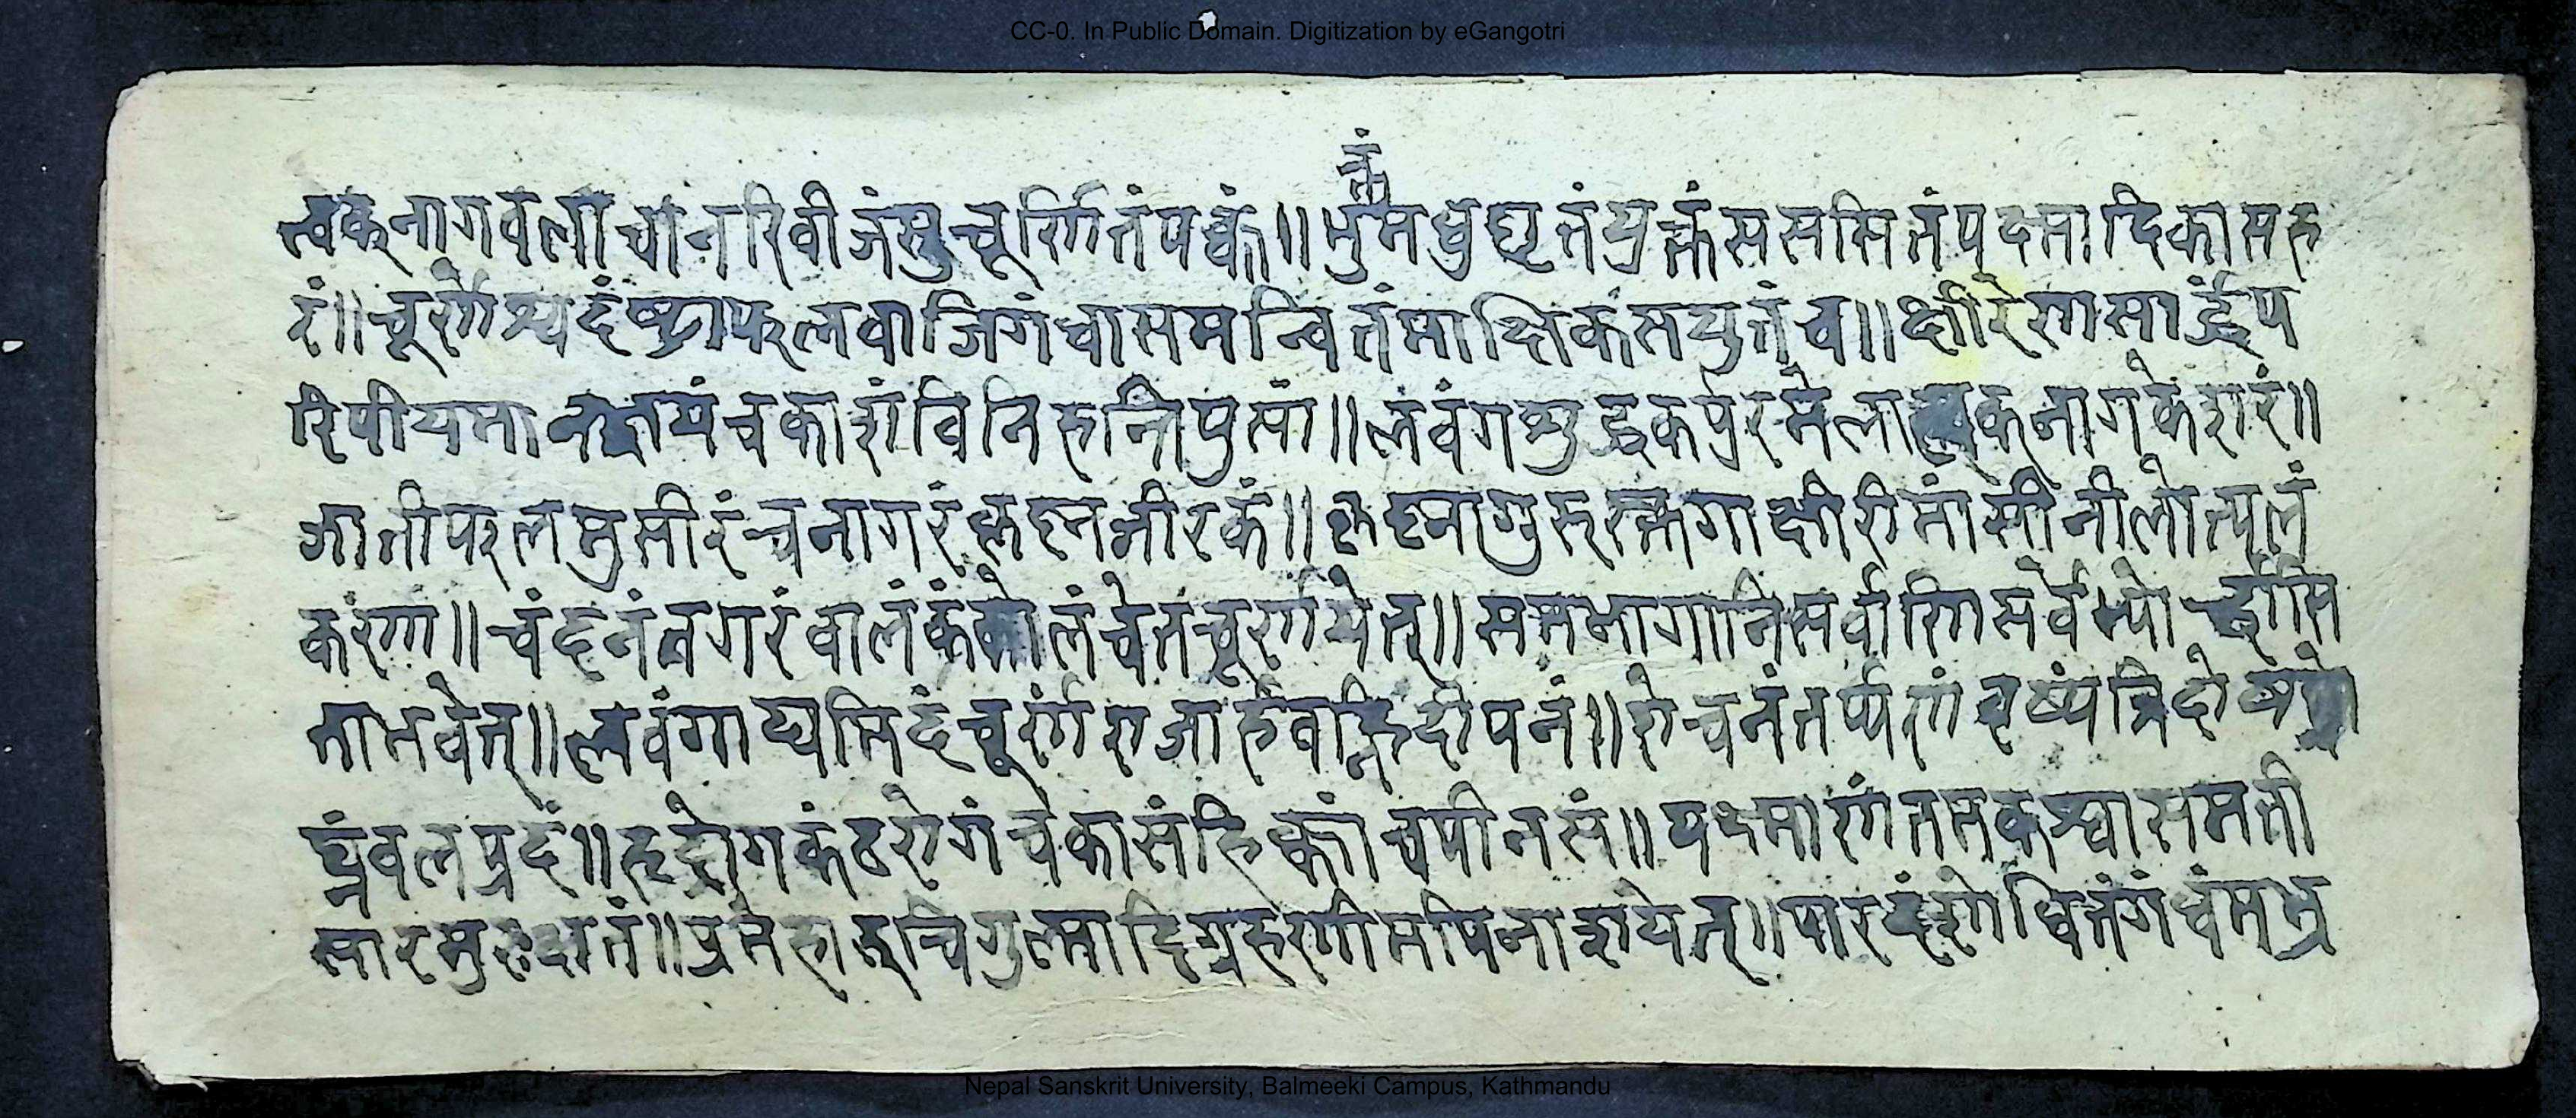 CC-0. In Public Domain. Digitization by eGangotri
त्वक्नागवला वानरिवीजंसुचूर्णितंपक्वं॥ मधुघृतंयुक्तंससितंपक्ष्मादिकासह
रं॥ चूर्णश्वदंष्ट्राफलवाजिगंधासमन्वितंमाक्षिकसयुतंच॥ क्षीरेणसार्द्धंप
रिपीयमान क्षयंचकाशंविनिहन्तिपुसां॥ लवंगशुद्धकर्पुरमेलात्वक्नागकेशरं॥
जातीफलमुसीरंचनागरंकृष्नजीरकं॥ कृष्नागुरुस्तुगाक्षीरीमांसीनीलोत्पलं
करणा॥ चंदनंतगरंवालंकंकोलंचेतचूर्णयेत्॥ समभागानिसर्वाणिसर्वेभ्योर्द्धासि
ताभवेत्॥ लवंगाद्यमिदंचूर्णंराजार्हंवह्निदीपनं॥ रोचनंतर्प्पणंवृष्यंत्रिदोष
घ्नंवलप्रदं॥ हृद्रोगकंठरोगंचकासंहिक्कांचपीनसं॥ यक्ष्माणंतमकश्वासमती
सारमुरःक्षतं॥ प्रमेहारुचिगुल्मादिग्रहणीमपिनाशयेत्॥ पारदंशोधितंगंधंमभ्र
Nepal Sanskrit University, Balmeeki Campus, Kathmandu